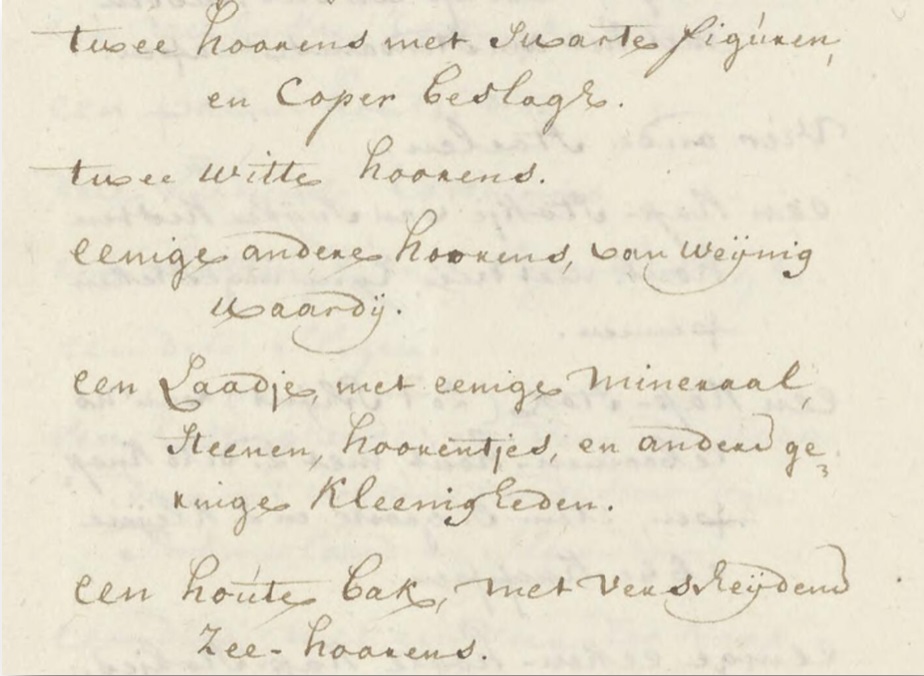 twee hoorens met Swarte figúren,
en Coper beslage.
twee witte hoorens.
eenige andere hoorens, van weijnig
waardij.
een Laadje, met eenige mineraal,
Steenen, hoorentjes, en andere ge¬
ringe Kleenigheden.
een hoúte bak, met verscheijdene
Zee-hoorens.